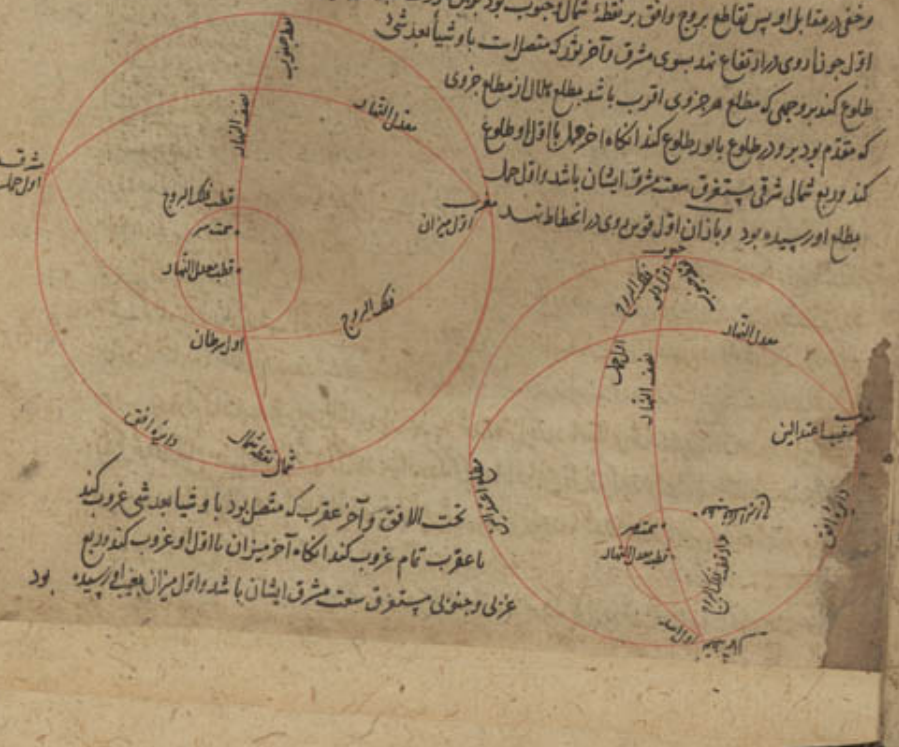 وخفی در مقابل او پس تقاطع بروج وافق بر نقطهٔ شمال وجنوب بود
اول جوزا روی در ارتفاع نهد بسوی مشرق وآخر ثور که متصل است باو شیأ بعد شی
طلوع کند بروجهی که مطلع هر جزوی اقرب باشد بمطلع اعتدال از مطلع جزوی
که مقدم بود برو در طلوع تا ثور طلوع کند انکاه آخر حمل تا اول او طلوع
کند وربع شمالی شرقی مستغرق سعت مشرق ایشان باشد واول حمل
بمطلع او رسیده بود وبازان اول قوس روی در انحطاط نهد
نقطه جنوب
نصف النهار
معدل النهار
مشرق
اول حمل
قطب فلک البروج
سمت سر
قطب معدل النهار
مغرب
اول میزان
فلک البروج
اول سرطان
دایره افق
نقطه شمال
نقطه جنوب
فلک البروج
معدل النهار
اول حمل
نصف النهار
مغرب
مغیب اعتدالین
مطلع اعتدالین
سمت سر
قطب معدل النهار
دایره افق
تحت الافق وآخر عقرب که متصل بود باو شیأ بعد شی غروب کند
تا عقرب تمام غروب کند انکاه آخر میزان تا اول او غروب کند وربع
غربی وجنوبی مستغرق سعت مشرق ایشان باشد واول میزان بمغیب او رسیده بود